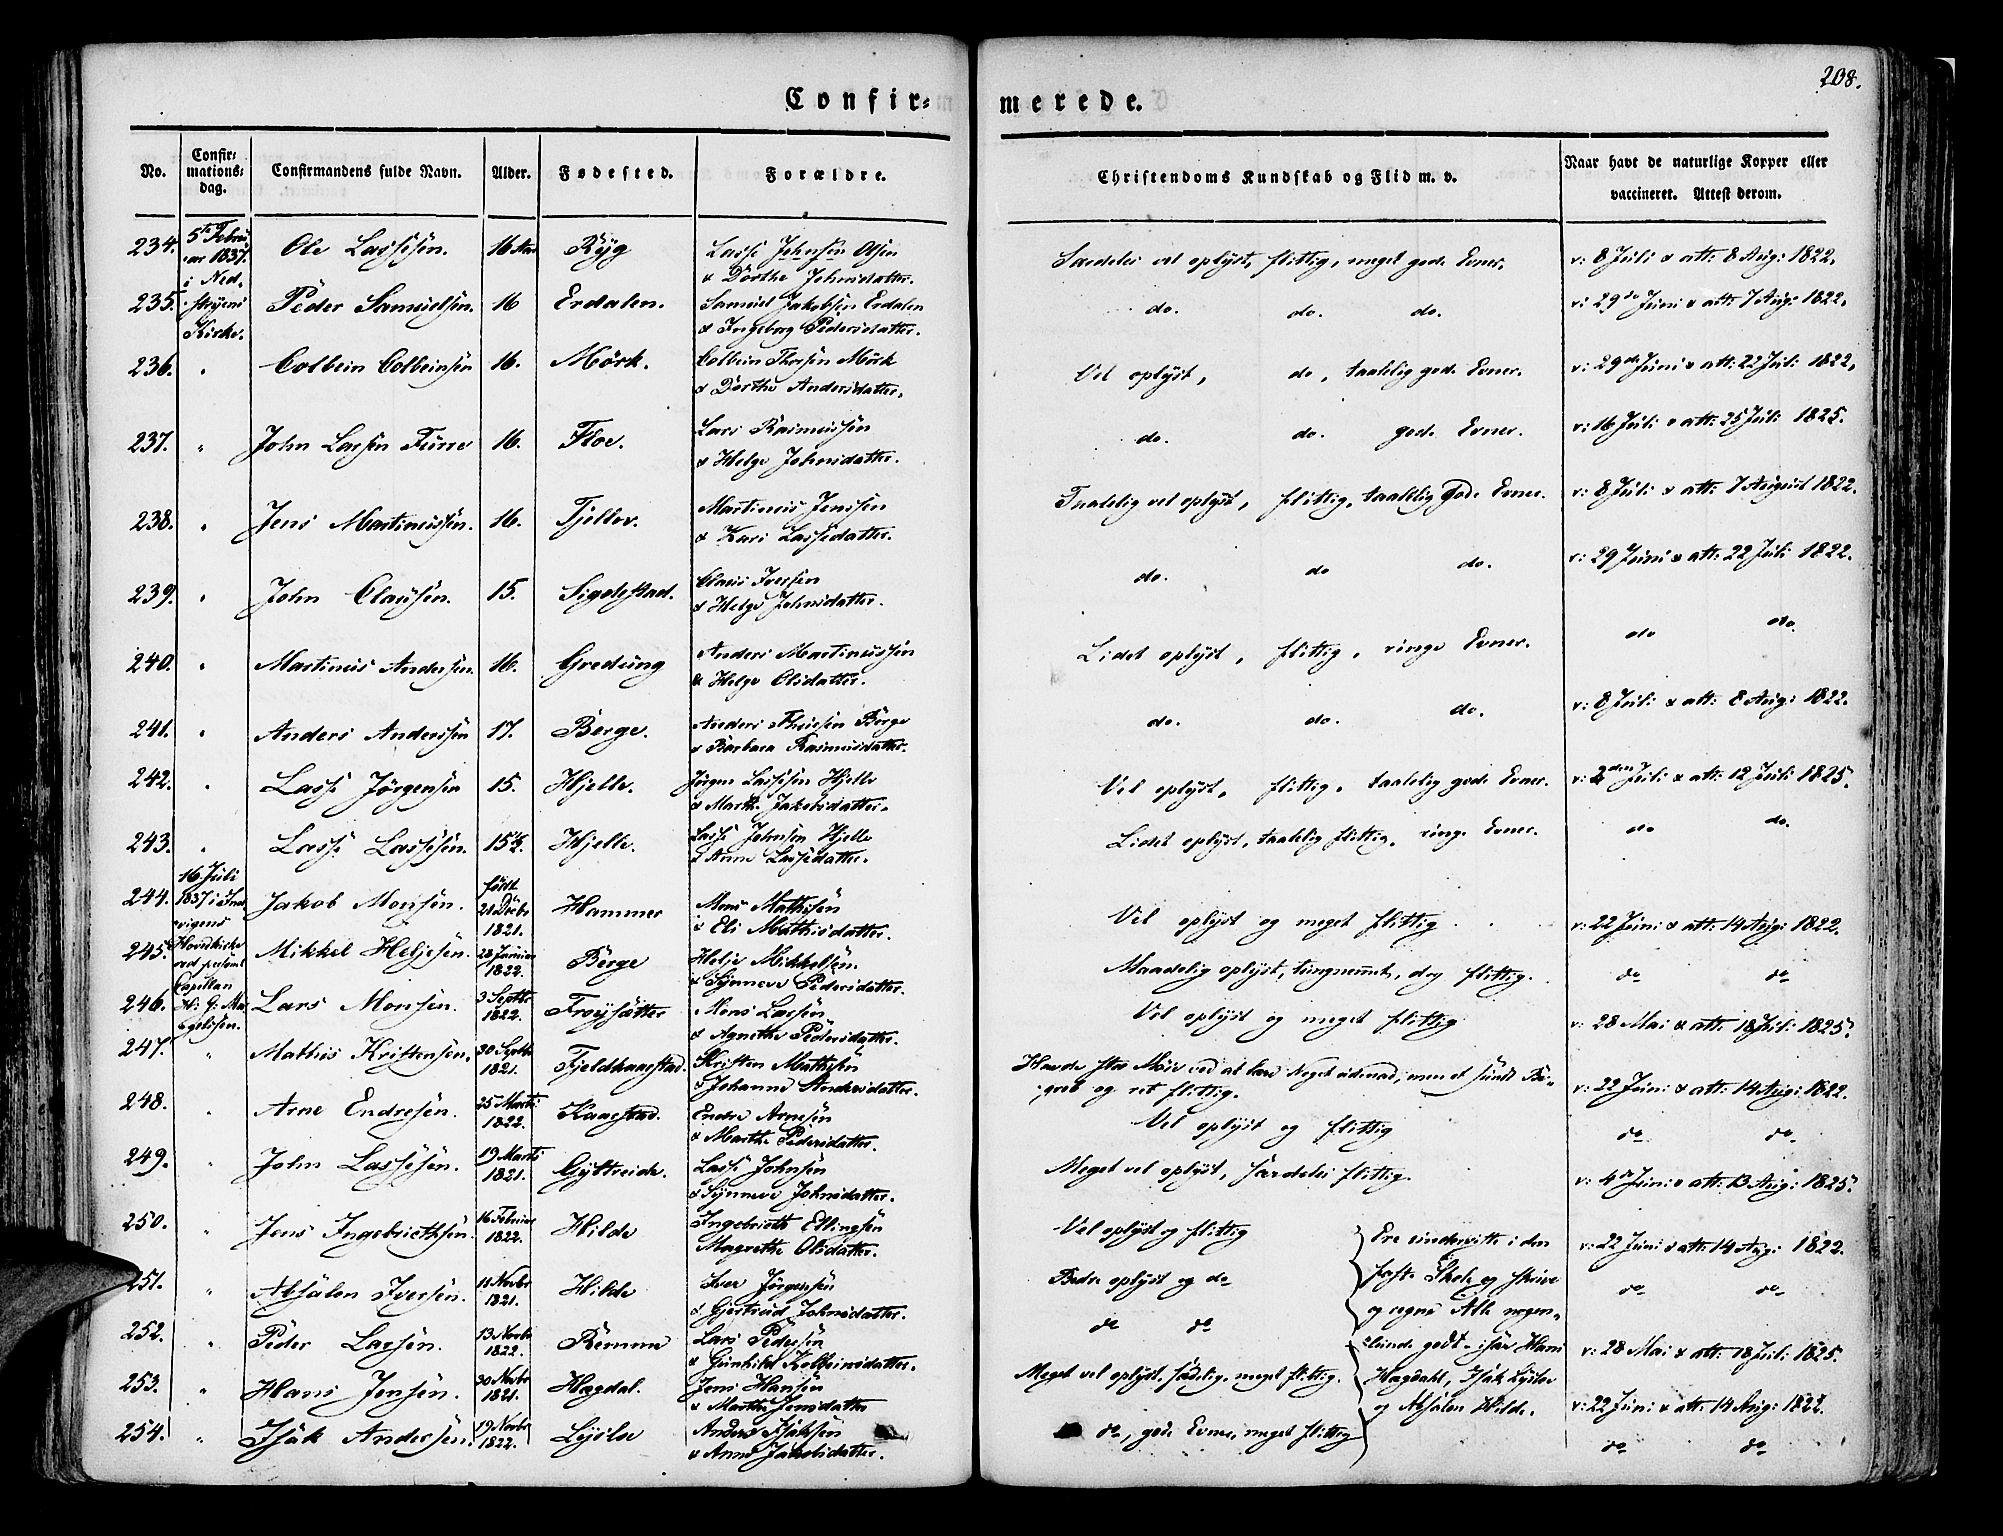 208.
Confir= merede.
No. Confir= mations= dag. Confirmandens fulde Navn. Alder. Fødested. Forældre. Christendoms Kundskab og Flid m. v. Naar havt de naturlige Kopper eller vaccineret. Attest derom.
234. 5te Februar 1837. i Ned. Ole Lassesen. 16 Aar Ryg Lasse Johnsen Olsen & Dorthe Johnsdatter. Særdeles vel oplyst, flittig, meget gode Evner. v: 8 Juli & att: 8 Aug: 1822.
235. stryens Kirke. Peder Samuelsen. 16 Erdalen. Samuel Jakobsen Erdalen & Ingeborg Pedersdatter. do. do. do. v: 29de Juni & att: 7 Aug: 1822.
236. " Colbein Colbeinsen 16. Mörk. Colbein Thorsen Mörk & Dorthe Andersdatter. Vel oplyst, do, taalelig gode Evner. v: 29de Juni & att: 22 Juli 1822.
237. " John Larsen Furre 16. Floe. Lars Rasmussen & Helge Johnsdatter. do. do. gode Evner. v: 16 Juli & att: 25 Juli 1825.
238. " Jens Martinussen. 16. Tjellev. Martinus Jenssen & Kari Lassedatter. Taalelig vel oplyst, flittig, taalelig gode Evner. v: 8 Juli & att: 7 August 1822.
239. " John Claussen. 15. Sigdestad. Claus Iversen & Helge Johnsdatter. do. do do. v: 29 Juni & att: 22 Juli 1822.
240. " Martinus Andersen. 16. Gredung Anders Martinussen & Helge Olsdatter. Lidet oplyst, flittig, ringe Evner. do do.
241. " Anders Anderssen 17. Berge. Anders Thuesen Berge & Barbara Rasmusdatter. do. do. do. v: 8 Juli & att: 8 Aug: 1822.
242. " Lasse Jörgensen 15. Hjelle. Jörgen Lassesen Hjelle & Marthe Jakobsdatter. Vel oplyst, flittig, taalelig gode Evner. v: 2den Juli & att: 12 Juli 1825.
243. " Lasse Lassesen. 15½. Hjelle. Lasse Johnsen Hjelle & Anne Lassedatter. Lidet oplyst, taalelig flittig, ringe Evner. do do.
244. 16 Juli 1837 i Ind vigens Jakob Monsen. födt 21 Decbr 1821. Hammer Mons Mathisen & Eli Mathisdatter. Vel oplyst og meget flittig v: 22 Juni & att: 14 Aug: 1822.
245. Hovedkirke ved person: Capellan Mikkel Heljesen. 28 Januar 1822. Berge Helje Mikkelsen. & Synneve Pedersdatter. Maadelig oplyst, tungnemmet, dog flittig. do do
246. Hr: G: Ma Lars Monsen. 3 Septbr 1822. Froysätter Mons Larsen & Agnethe Pedersdatter. Vel oplyst og meget flittig v: 28 Mai & att: 18 Juli: 1825.
247. " Mathis Kristensen. 30 Septbr 1821. Fjeldkaarstad. Kristen Mathisen & Johanne Andersdatter. Havde stor Möie ved at lære Noget udenad, men et sundt Be- greb og ret flittig. v: 22 Juni & att: 14 Aug: 1822.
248. " Arne Endresen. 25 Marts 1822. Kaarstad. Endre Arnesen & Marthe Pedersdatter. Vel oplyst og flittig do do
249. " John Lassesen. 19 Marts 1821. Gyltreide. Lasse Johnsen & Synneve Johnsdatter. Meget vel oplyst, særdeles flittig. v: 4de Juni & att: 13 Aug: 1825.
250. " Jens Ingebrigtsen. 16 Februar 1822. Hilde Ingebrigt Ellingsen Magrethe Olsdatter. Vel oplyst og flittig Ere underviste i den v: 22 Juni & att: 14 Aug: 1822.
251. " Absalon Iversen. 11 Novbr 1821. Hilde Iver Jörgensen & Gjertrud Johnsdatter. Bedre oplyst og do faste Skole og skrive og regne Alle nogen- do do
252. " Peder Larsen. 13 Novbr 1822. Remme Lars Pedersen & Gunhild Kolbeinsdatter. do do lunde godt, især Hans v: 28 Mai & att: 18 Juli: 1825.
253. " Hans Jensen. 30 Novbr 1821. Hagdal. Jens Hansen & Marthe Jensdatter Meget vel oplyst, meget flittig. Hagdahl, Isak og Absalon Hilde. v: 22 Juni & att: 14 Aug: 1822.
254. " Isak Andersen. 19 Novbr 1822. Anders Isaksen & Anne Jakobsdatter. do, gode Evner, meget flittig do do